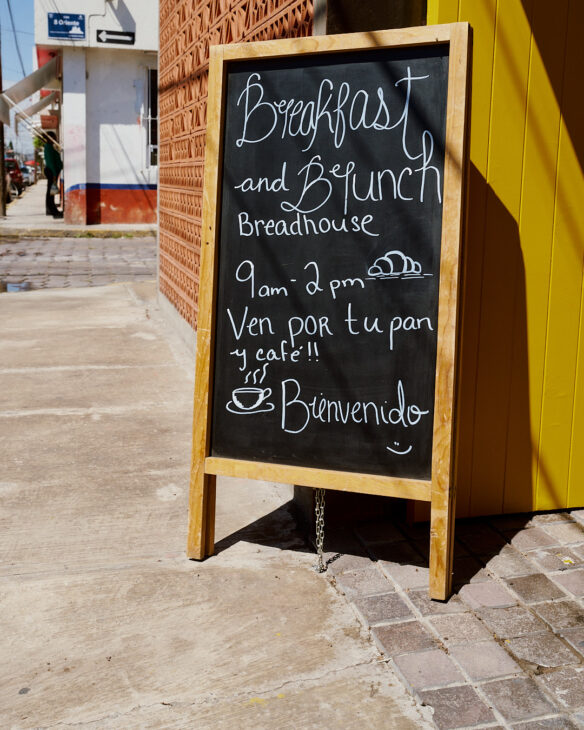 8 Oriente
Breakfast
and Brunch
Breadhouse
9am - 2pm
Ven por tu pan
y café!!
Bienvenido